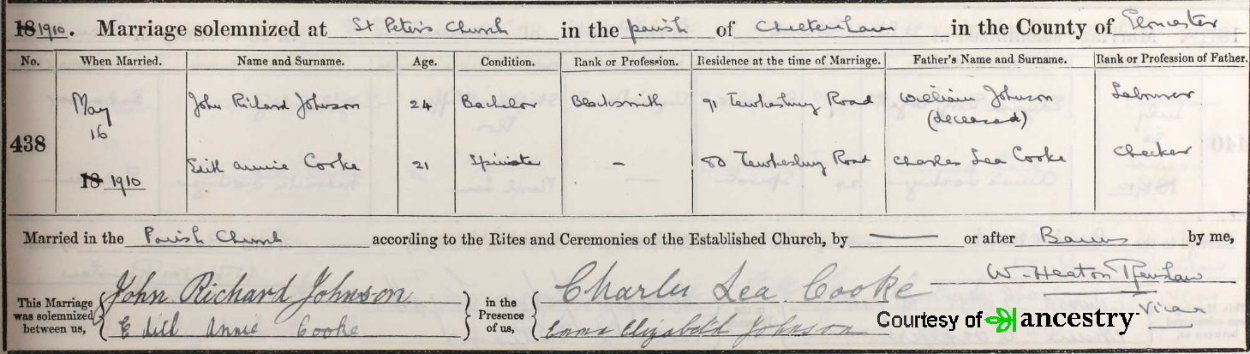 18 1910. Marriage solemnized at St Peter's Church in the parish of Cheltenham in the County of Gloucester
No. When Married. Name and Surname. Age. Condition. Rank or Profession. Residence at the time of Marriage. Father's Name and Surname. Rank or Profession of Father.
438 May 16 18 1910
John Richard Johnson 24 Bachelor Blacksmith 91 Tewkesbury Road William Johnson (deceased) Labourer
Edith Annie Cooke 21 Spinster – 80 Tewkesbury Road Charles Lea Cooke Checker
Married in the Parish Church according to the Rites and Ceremonies of the Established Church, by — or after Banns by me,
W. Heaton Renshaw
Vicar
This Marriage was solemnized between us,
John Richard Johnson
Edith Annie Cooke
in the Presence of us,
Charles Lea Cooke
Emma Elizabeth Johnson
Courtesy of ancestry